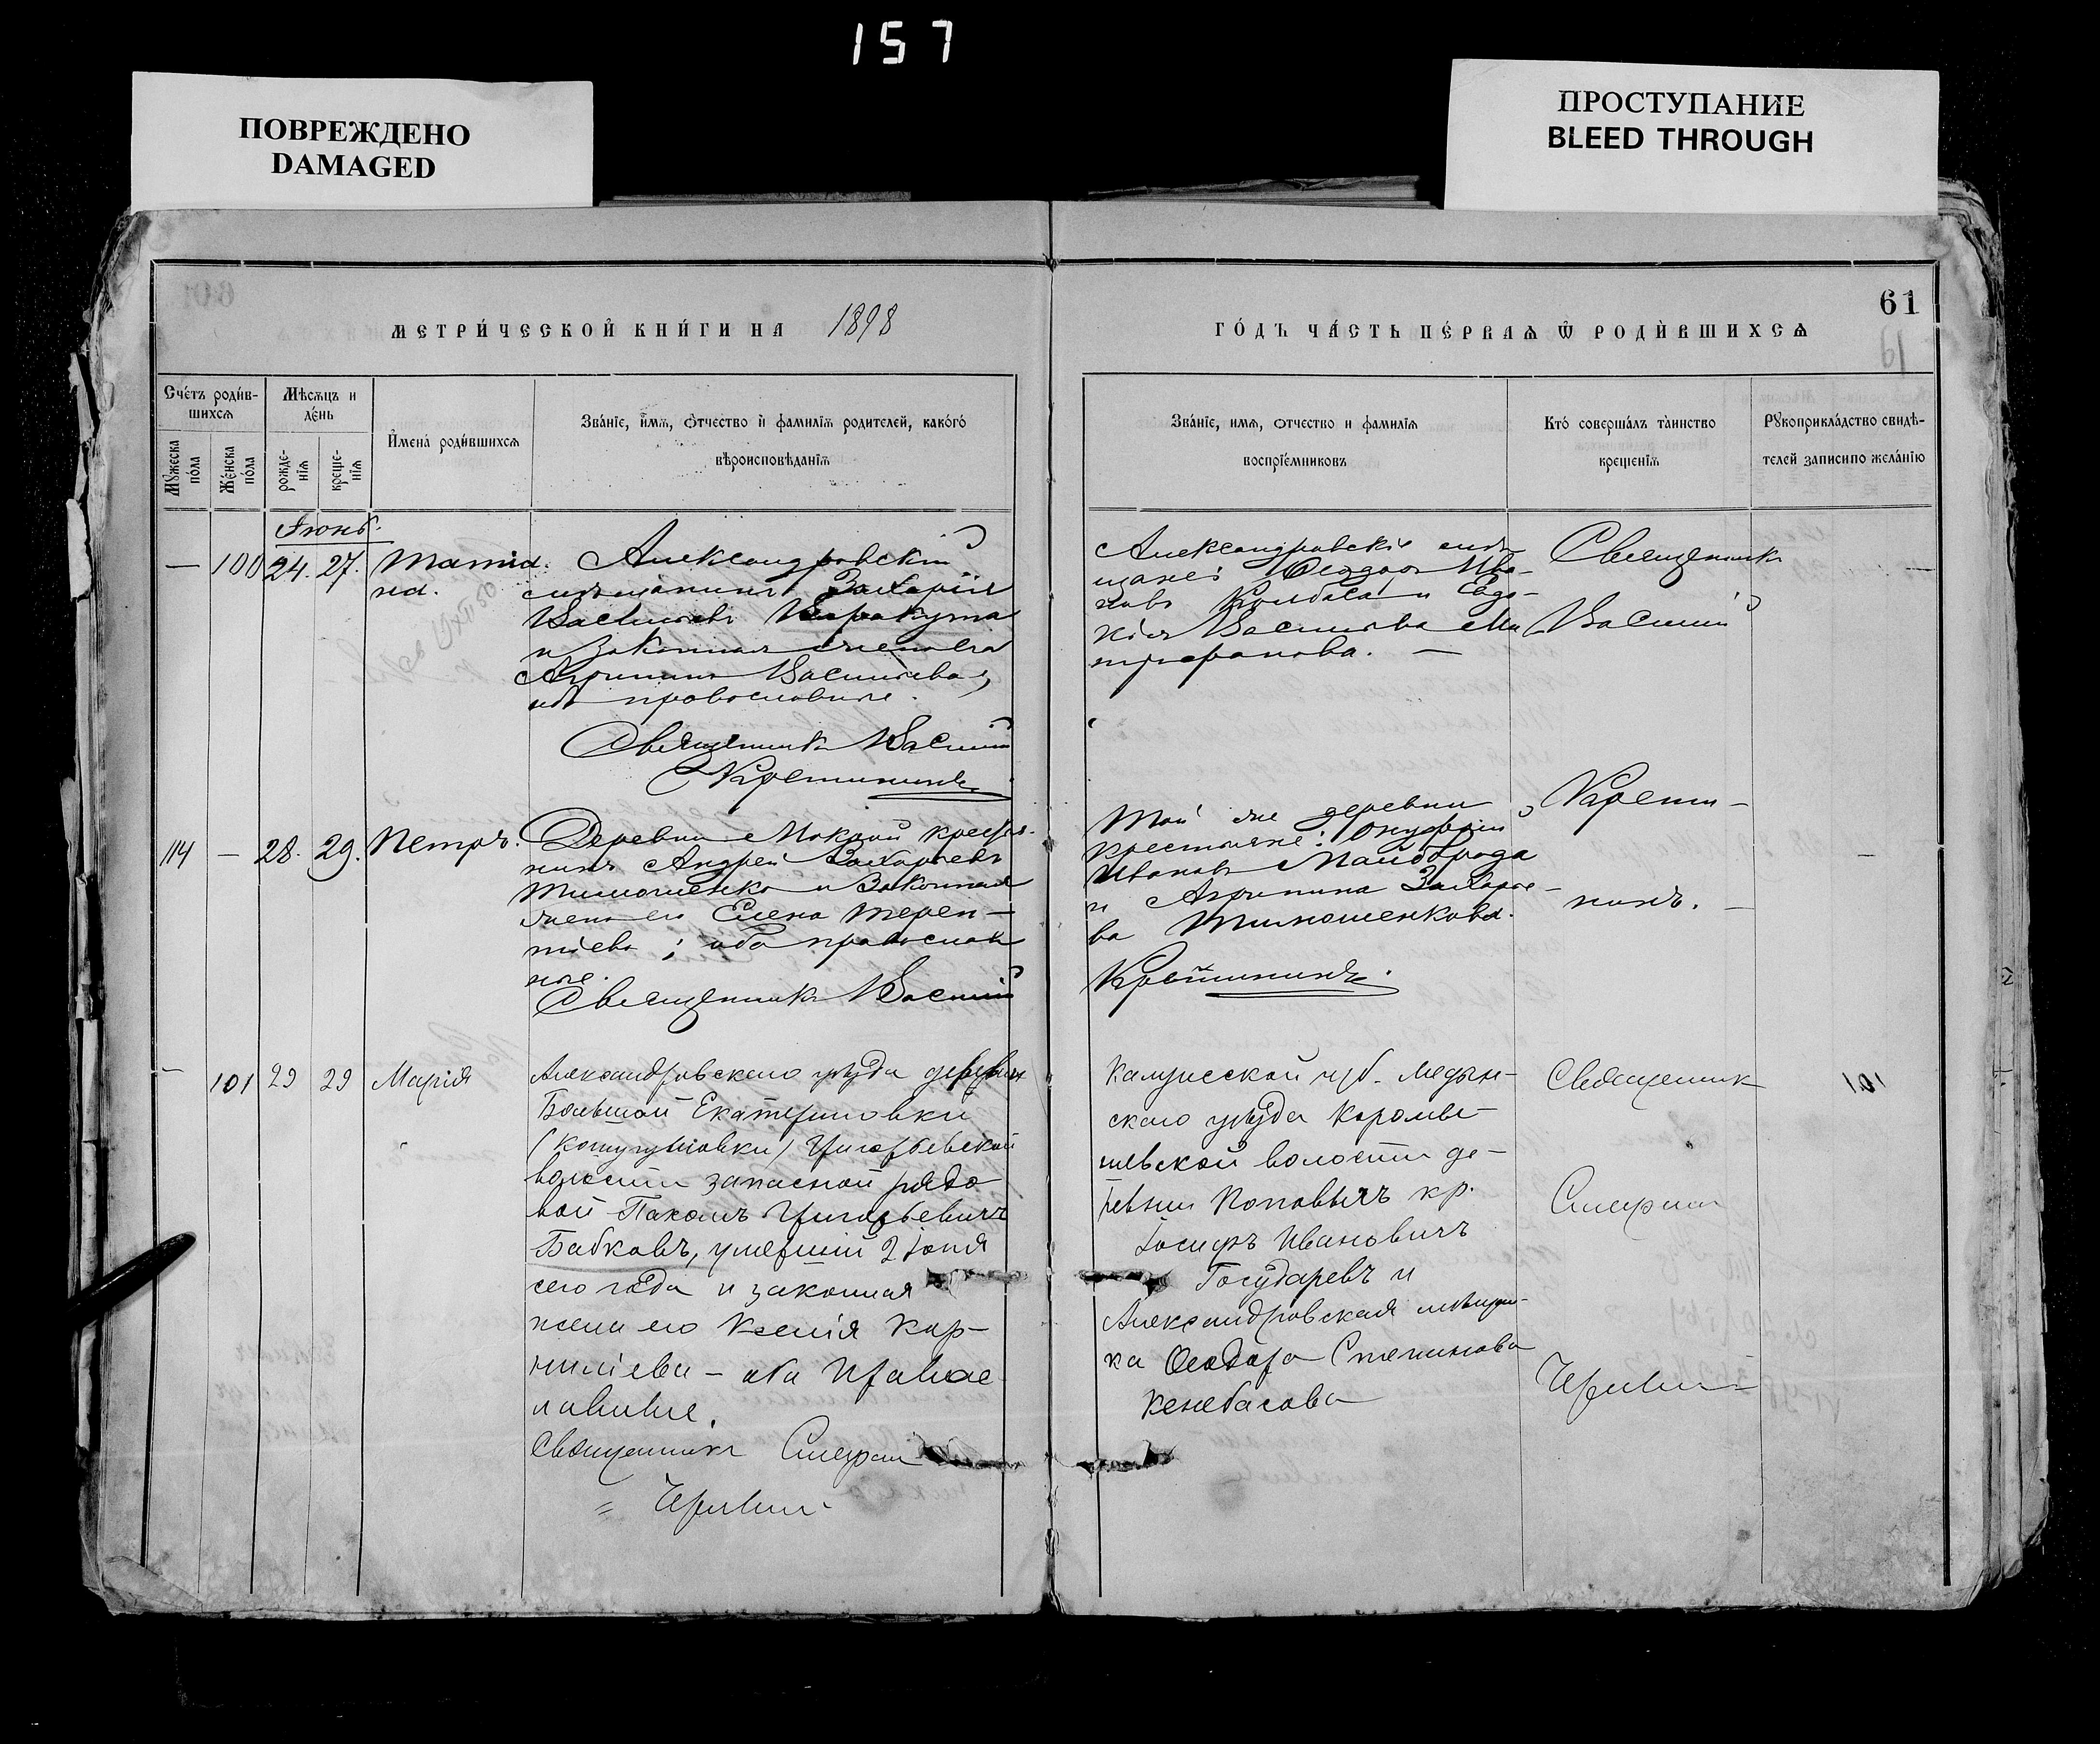 157
ПОВРЕЖДЕНО
DAMAGED
ПРОСТУПАНИЕ
BLEED THROUGH
61
МЕТРИ́ЧЕСКОЙ КНИ́ГИ НА 1898
ГО́ДЪ ЧА́СТЬ ПЕ́РВАѦ Ѿ РОДИ́ВШИХСѦ
Сче́тъ роди́в-
шихсѧ
Мꙋ́жеска
по́ла
Же́нска
по́ла
Мѣ́сѧцъ и
де́нь
рожде-
нїѧ
креще-
нїѧ
И҆мена̀ роди́вшихсѧ
Зва́нїе, и҆́мѧ, ѻ҆́тчество и҆ фамилїѧ родителей, како́гѡ
вѣроисповѣ́данїѧ
Зва́нїе, имѧ, отчество и фамилїѧ
воспрїе́мниковъ
Кто́ соверша́лъ та́инство
креще́нїѧ
Рꙋкоприкла́дство свидѣ́-
телей записи по жела́нїю
Іюнь.
— 100 24. 27.
Александровскій
мѣщанинъ Захарія
Васильевъ
и законная жена его
Агрипина Васильева;
оба православные.
Священникъ Василій
Кретининъ
Александровскіе мѣ-
щане: Ѳеодоръ Ива-
новъ Колбаса и Евдо-
кія Васильева Ми-
трофанова. —
Священникъ
Василій
114 — 28. 29. Петръ.
Деревни Мокрой крестья-
нинъ Андрей Захарьевъ
Тимошенко и законная
жена его Елена Терен-
тіева; оба православ
ные.
Священникъ Василій
Той же деревни
крестьяне: Онуфрій
Ивановъ Майборода
и Агрипина Захарье-
ва Тимошенкова.
Кретининъ.
Крети-
нинъ. —
— 101 29 29 Марія
Александровскаго уѣзда деревни
Большой Екатериновки
волости запасной рядо
вой Пахомъ Григорьевичъ
Бабковъ, умершій 2 Іюня
сего года и законная
жена его Ксенія Кор-
ниліева — оба правос
лавные.
Священникъ
Калужской губ. Медын-
скаго уѣзда
волости де-
ревни Поповыхъ кр.
Іосифъ Ивановичъ
Государевъ и
Александровская мѣщан-
ка Ѳеодора
Священникъ
101